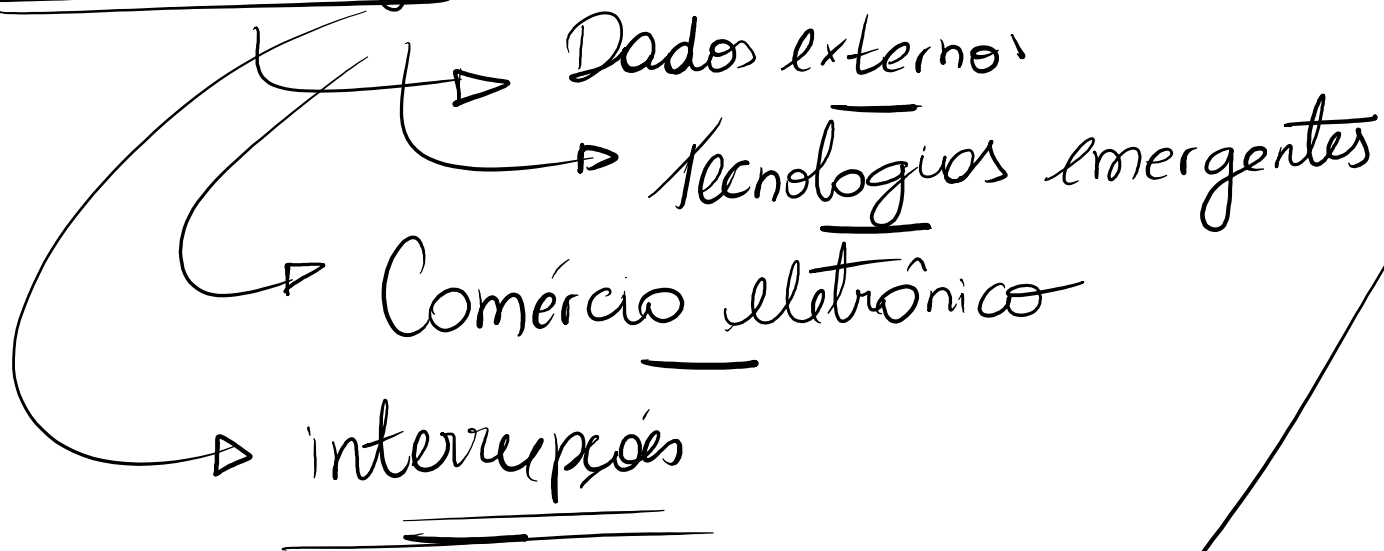 Dados externos
Tecnologias emergentes
Comércio eletrônico
interrupções